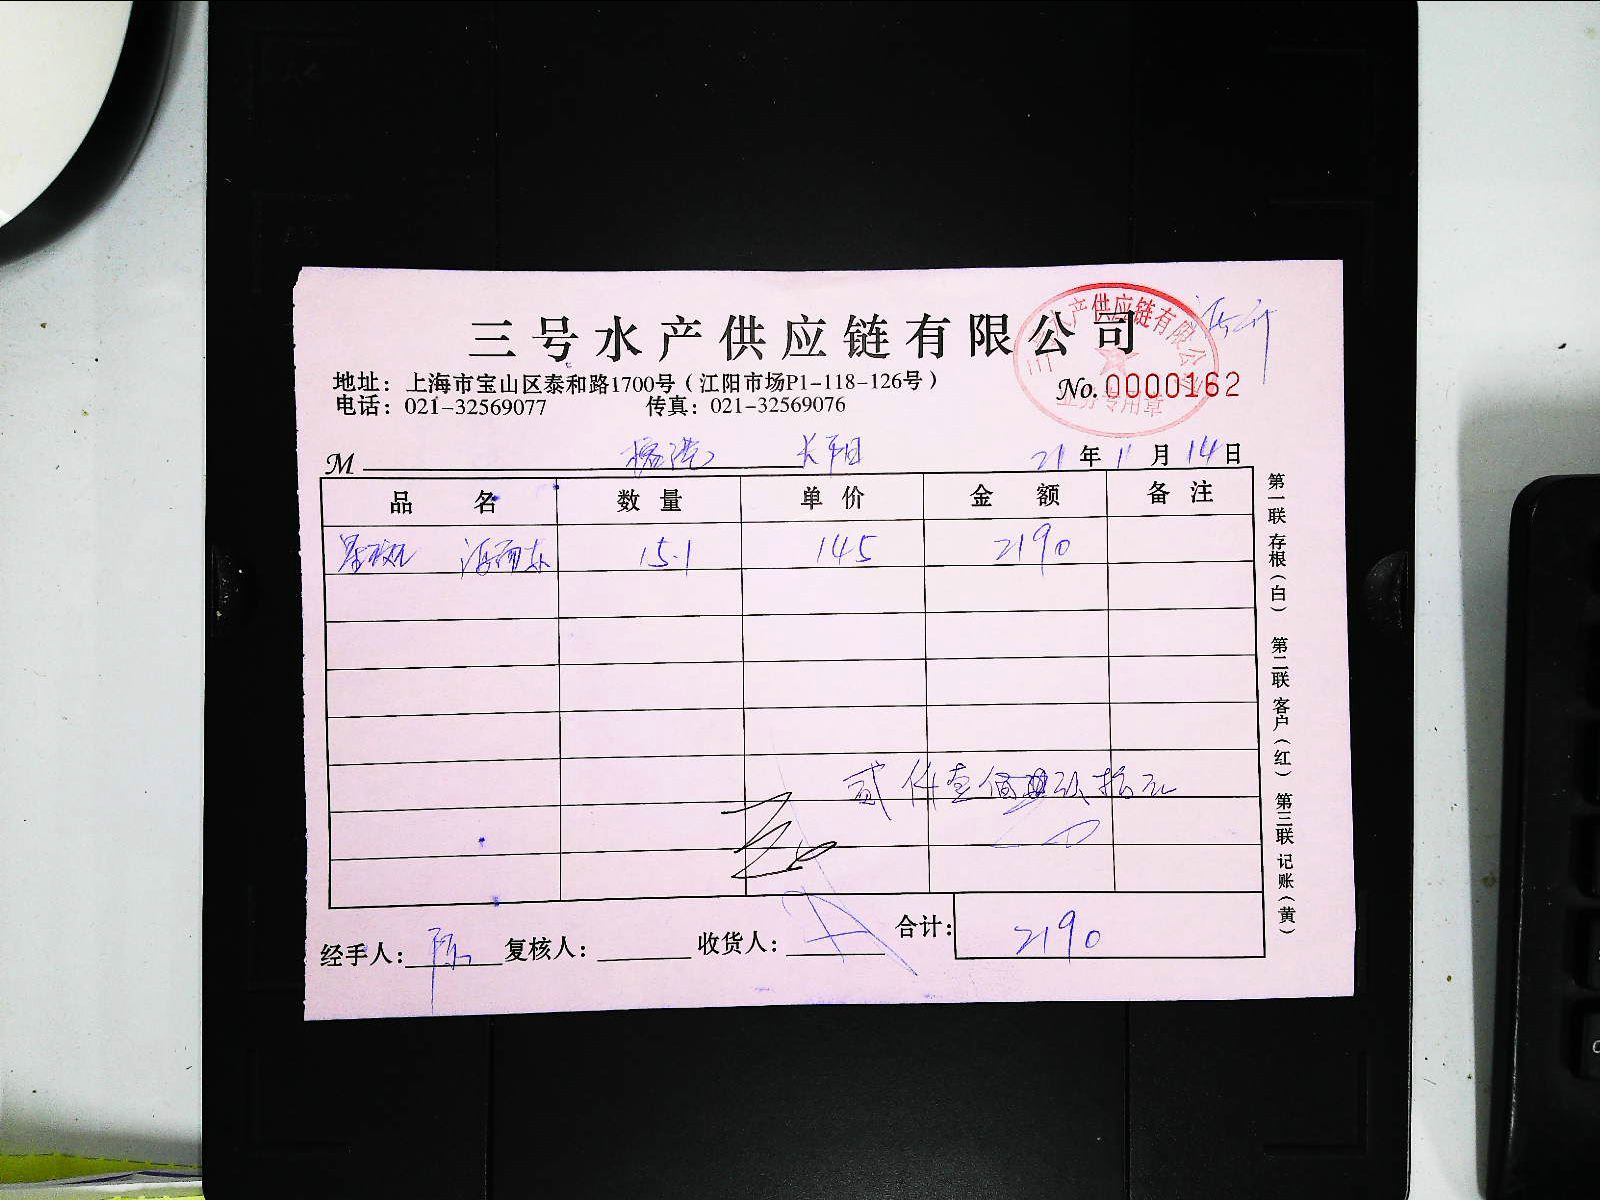 三号水产供应链有限公司
地址：上海市宝山区泰和路1700号（江阳市场P1-118-126号）
电话：021-32569077 传真：021-32569076
No.0000162
业务专用章
M 长阳 21年11月14日
品名 数量 单价 金额 备注
15.1 145 2190
贰仟壹佰玖拾元
经手人：陈 复核人： 收货人： 合计：2190
第一联 存根（白） 第二联 客户（红） 第三联 记账（黄）